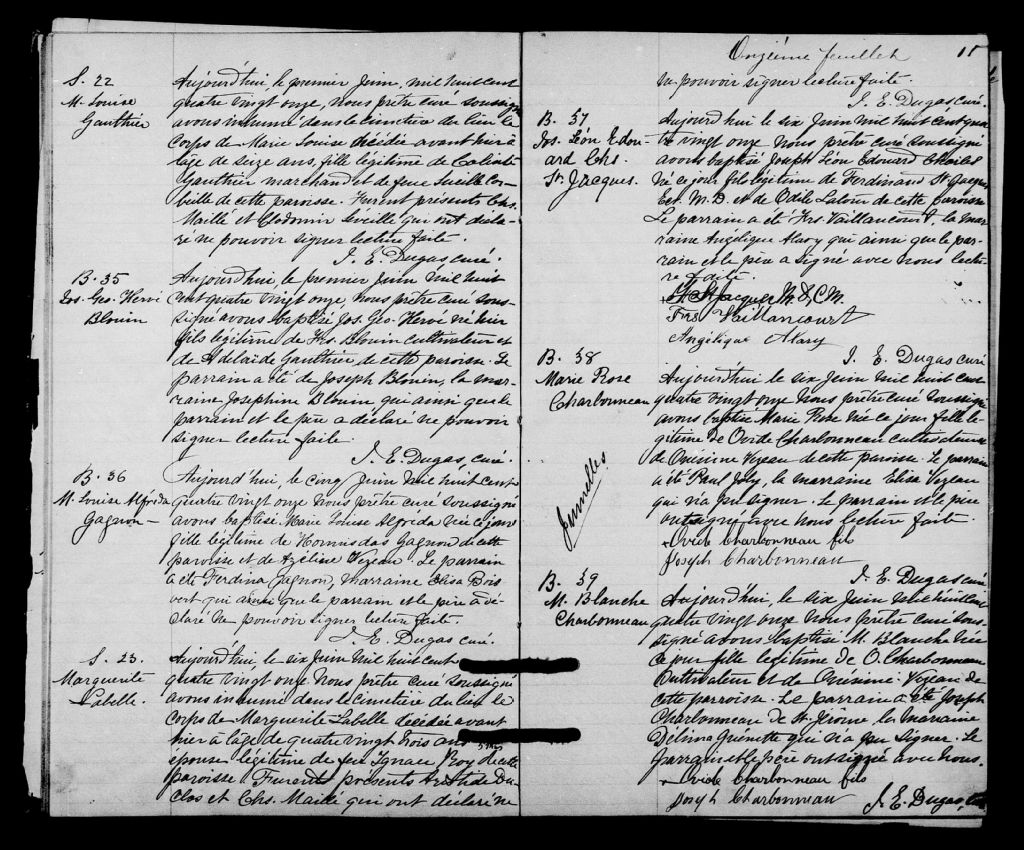 S. 22
M. Louise
Gauthier
Aujourd'hui, le premier Juin, mil huit cent
quatre vingt onze, nous prêtre curé soussigné
avons inhumé dans le cimetière du lieu le
corps de Marie Louise décédée avant hier à
l'âge de seize ans, fille légitime de
Gauthier marchand et de feue Lucille Cor-
beille de cette paroisse. Furent présents Chs.
Maillé et Clodomir Léveillé qui ont décla-
ré ne pouvoir signer lecture faite.
J. E. Dugas curé.
B. 35
Jos. Geo. Hervé
Blouin
Aujourd'hui, le premier Juin mil huit
cent quatre vingt onze, nous prêtre curé sous-
signé avons baptisé Jos. Geo. Hervé né hier
fils légitime de Frs. Blouin cultivateur et
de Adelaide Gauthier de cette paroisse. Le
parrain a été de Joseph Blouin, la mar-
raine Josephine Blouin qui ainsi que le
parrain et le père a déclaré ne pouvoir
signer lecture faite.
J. E. Dugas curé.
B. 36
M. Louise Alfreda
Gagnon
Aujourd'hui, le cinq Juin mil huit cent
quatre vingt onze nous prêtre curé soussigné
avons baptisé Marie Louise Alfreda née ce jour
fille légitime de Hormisdas Gagnon de cette
paroisse et de Azéline Vézeau. Le parrain
a été Ferdina Gagnon, marraine Elisa Bois
vert qui ainsi que le parrain et le père a dé-
claré ne pouvoir signer lecture faite.
J. E. Dugas curé.
S. 23.
Marguerite
Labelle.
Aujourd'hui, le six Juin mil huit cent
quatre vingt onze nous prêtre curé soussigné
avons inhumé dans le cimetière du lieu le
corps de Marguerite Labelle décédée avant
hier à l'âge de quatre vingt trois ans
épouse légitime de feu Ignace Roy de cette
paroisse Furent présents Aristide Du-
clos et Chs. Maillé qui ont déclaré ne
Onzième feuillet
11
ne pouvoir signer lecture faite.
J. E. Dugas curé.
B. 37
Jos. Léon Edou-
ard Chs.
St. Jacques.
Aujourd'hui le six Juin mil huit cent qua-
tre vingt onze nous prêtre curé soussigné
avons baptisé Joseph Léon Edouard Charles
né ce jour fils légitime de Ferdinand St. Jacques
Ecr. M. D. et de Odile Latour de cette paroisse
Le parrain a été Frs. Vaillancourt, la mar-
raine Angélique Alary qui ainsi que le par-
rain et le père a signé avec nous lectu-
re faite.
St Jacques M. D, C.M.
Frs Vaillancourt
Angélique Alary
J. E. Dugas curé
B. 38
Marie Rose
Charbonneau
Aujourd'hui le six Juin mil huit cent
quatre vingt onze nous prêtre curé soussigné
avons baptisé Marie Rose née ce jour fille lé-
gitime de Ovide Charbonneau cultivateur
de Onisime Vezeau de cette paroisse. Le parrain
a été Paul Joly, la marraine Elisa Vezeau
qui n'a pu signer. Le parrain et le père
ont signé avec nous lecture faite.
Ovide Charbonneau fils
Joseph Charbonneau
J. E. Dugas curé
Jumelles
B. 39
M. Blanche
Charbonneau
Aujourd'hui, le six Juin mil huit cent
quatre vingt onze nous prêtre curé sous-
signé avons baptisé M. Blanche née
ce jour fille légitime de O. Charbonneau
cultivateur et de Onisime Vezeau de
cette parroisse. Le parrain a été Joseph
Charbonneau de St. Jérome la marraine
Délima Grénette qui n'a pu signer. Le
parrain et le père ont signé avec nous.
Ovide Charbonneau fils
Joseph Charbonneau
J. E. Dugas, curé